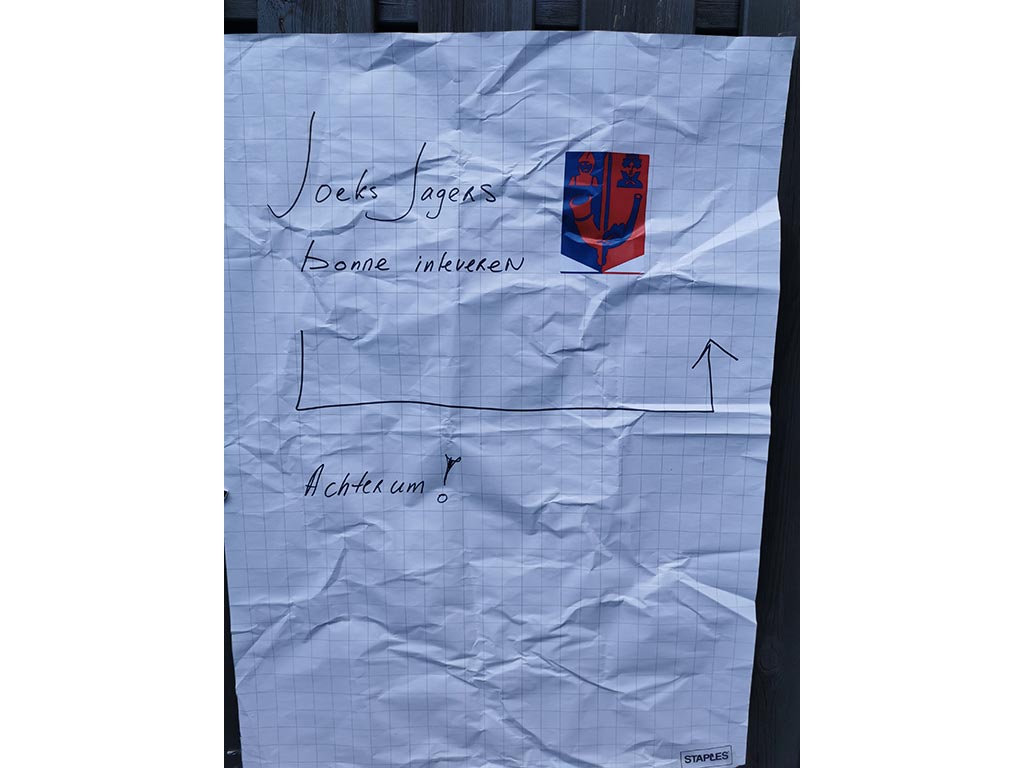 Joeks Jagers
bonne inleveren
Achterum!
STAPLES